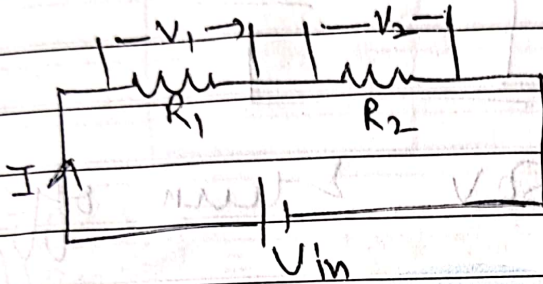 V₁ V₂
R₁ R₂
I
Vin